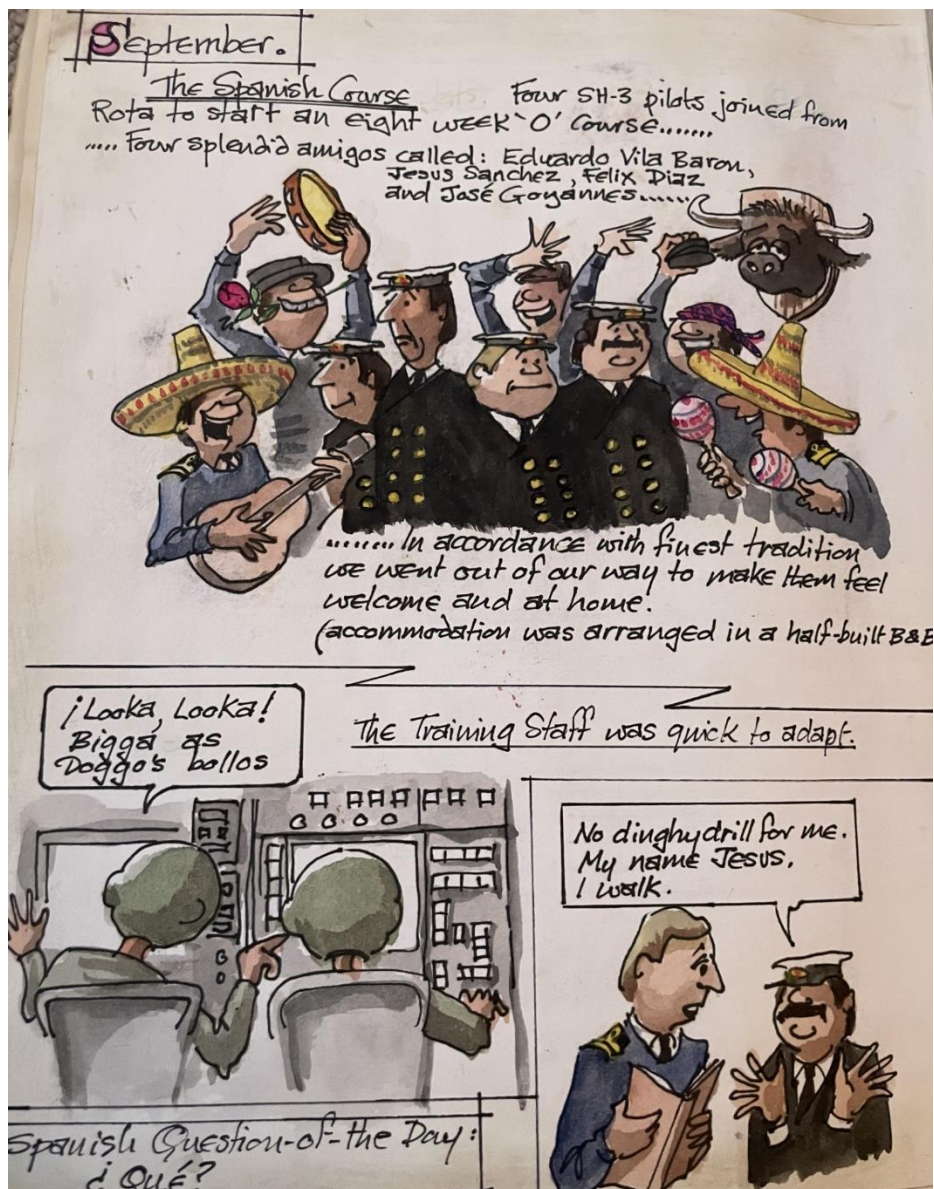 September.
The Spanish Course Four SH-3 pilots joined from
Rota to start an eight week 'O' Course.......
..... Four splendid amigos called: Eduardo Vila Baron,
Jesus Sanchez, Felix Diaz
and José Goyannes......
........ In accordance with finest tradition
we went out of our way to make them feel
welcome and at home.
(accommodation was arranged in a half-built B&B
The Training Staff was quick to adapt.
¡Looka, Looka!
Bigga as
Doggo's bollos
No dinghy drill for me.
My name Jesus.
I walk.
Spanish Question-of-the Day:
¿Qué?